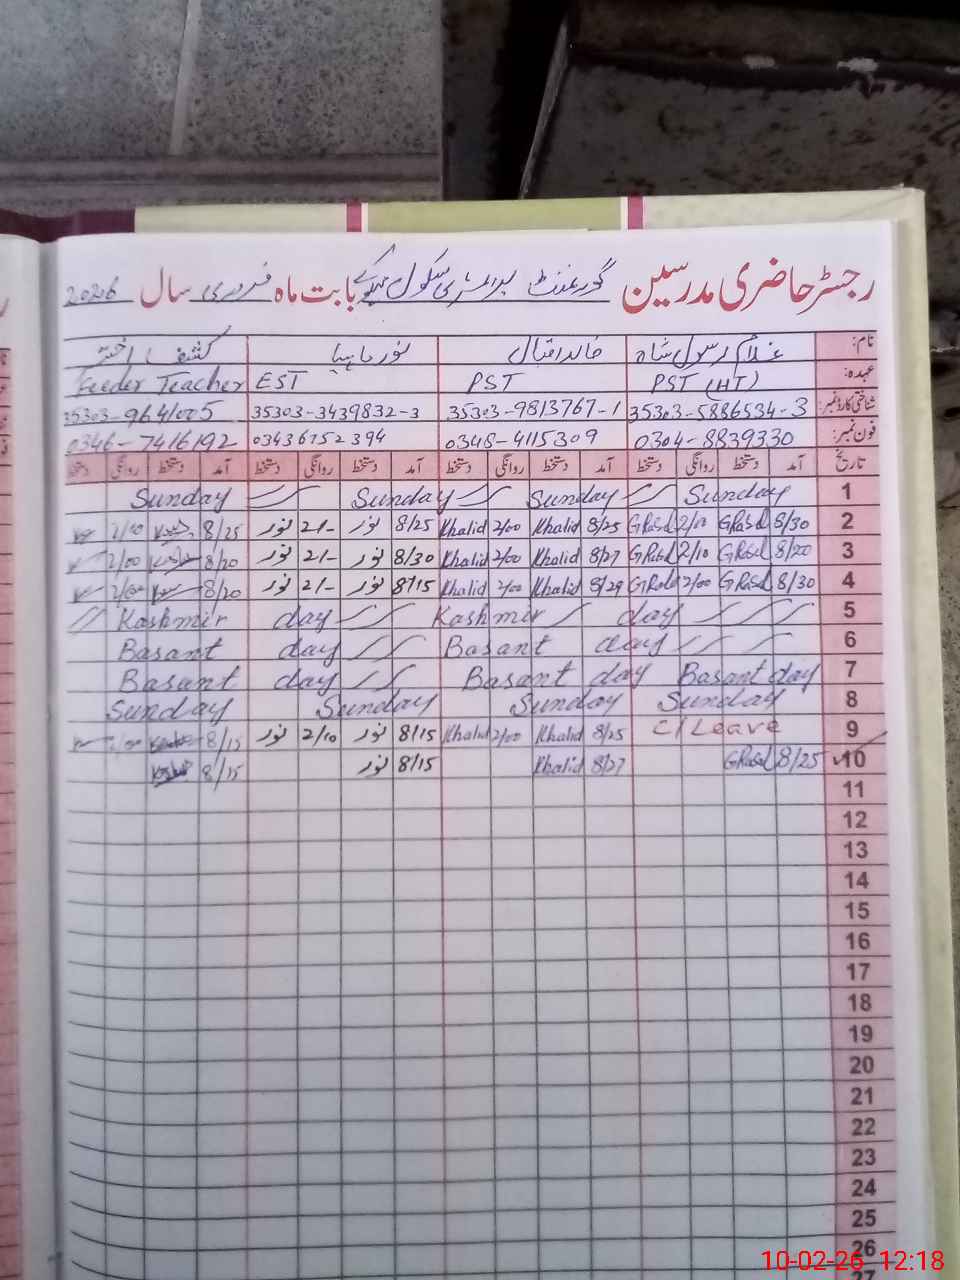 رجسٹر حاضری مدرسین گورنمنٹ پرائمری سکول بابت ماہ فروری سال 2026
نام: غلام رسول شاہ خالد اقبال نور ماہیا کشف اختر
عہدہ: PST (HT) PST EST Feeder Teacher
شناختی کارڈ نمبر: 35303-5886534-3 35303-9813767-1 35303-3439832-3 35303-9641005
فون نمبر: 0304-8839330 0348-4115309 03436752394 0346-7416192
تاریخ آمد دستخط روانگی دستخط آمد دستخط روانگی دستخط آمد دستخط روانگی دستخط آمد دستخط روانگی دستخط
1 Sunday Sunday Sunday Sunday
2 8/30 GRasul 2/10 GRasul 8/25 Khalid 2/00 Khalid 8/25 نور 2/- نور 8/25 2/00
3 8/20 GRasul 2/10 GRasul 8/27 Khalid 2/00 Khalid 8/30 نور 2/- نور 8/20 2/00
4 8/30 GRasul 2/00 GRasul 8/29 Khalid 2/00 Khalid 8/15 نور 2/- نور 8/20 2/00
5 Kashmir day Kashmir day
6 Basant day Basant day
7 Basant day Basant day Basant day
8 Sunday Sunday Sunday Sunday
9 C/Leave 8/25 Khalid 2/00 Khalid 8/15 نور 2/10 نور 8/15
10 8/25 GRasul 8/27 Khalid 8/15 نور 8/15
11
12
13
14
15
16
17
18
19
20
21
22
23
24
25
26
27
10-02-26 12:18